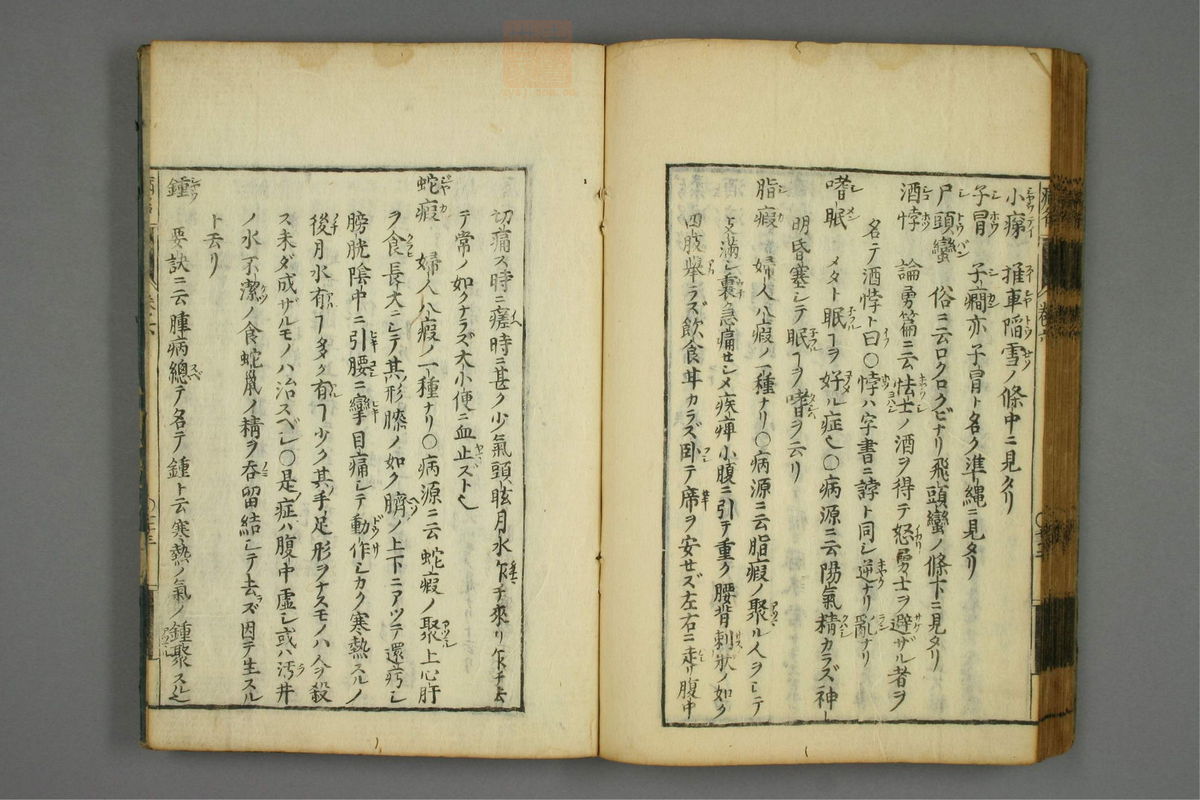 小瘳　推車陷雪ノ條中ニ見タリ
子冒　子癇亦子冒ト名ク準繩ニ見タリ
尸頭蠻　俗ニ云ロクロクビナリ飛頭蠻ノ條下ニ見タリ
酒悖　論勇篇ニ云怯士ノ酒ヲ得テ怒勇士ヲ避ザル者ヲ
名テ酒悖ト曰○悖ハ字書ニ誖ト同シ逆ナリ亂ナリ
嗜眠　メタト眠ヿヲ好ル症也○病源ニ云陽氣精カラズ神
明昏塞シテ眠ヿヲ嗜ヲ云リ
脂瘕　婦人八瘕ノ一種ナリ○病源ニ云脂瘕ノ聚ル人ヲシテ
支滿シ裏急痛セシメ疾痺小腹ニ引テ重ク腰背刺狀ノ如ク
四肢舉ラズ飲食甘カラズ卧テ席ヲ安セズ左右ニ走リ腹中
切痛ス時ニ瘥時ニ甚ク少氣頭眩月水乍チ來リ乍チ去
テ常ノ如クナラズ大小便ニ血止ズト也
蛇瘕　婦人八瘕ノ一種ナリ○病源ニ云蛇瘕ノ聚上心肝
ヲ食長大ニシテ其形膝ノ如ク臍ノ上下ニアツテ還疞シ
膀胱陰中ニ引腰ニ攣目痛シテ動作シカタク寒熱スルノ
後月水有ヿ多ク有ヿ少ク其手足形ヲナスモノハ今殺
ス未ダ成ザルモノハ治スベシ○是症ハ腹中虛シ或ハ汚井
ノ水不潔ノ食蛇鼠ノ精ヲ呑留結シテ去ズ因テ生スル
ト云リ
鍾　要訣ニ云腫病總テ名テ鍾ト云寒熱ノ氣ノ鍾聚スル也